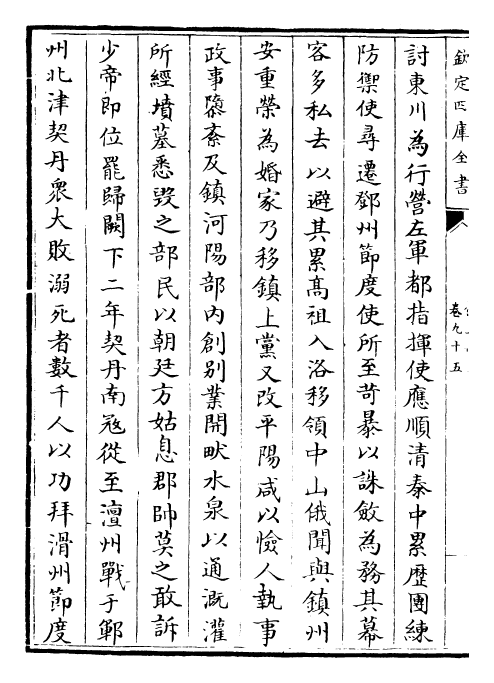 欽定四庫全書
卷九十五
討東川為行營左軍都指揮使應順清泰中累歷團練
防禦使尋遷鄧州節度使所至苛暴以誅斂為務其幕
客多私去以避其累髙祖入洛移領中山俄聞與鎮州
安重榮為婚家乃移鎮上黨又改平陽咸以憸人執事
政事隳紊及鎮河陽部内創别業開畎水泉以通溉灌
所經墳墓悉毁之部民以朝廷方姑息郡帥莫之敢訴
少帝即位罷歸闕下二年契丹南寇從至澶州戰于鄆
州北津契丹衆大敗溺死者數千人以功拜滑州節度